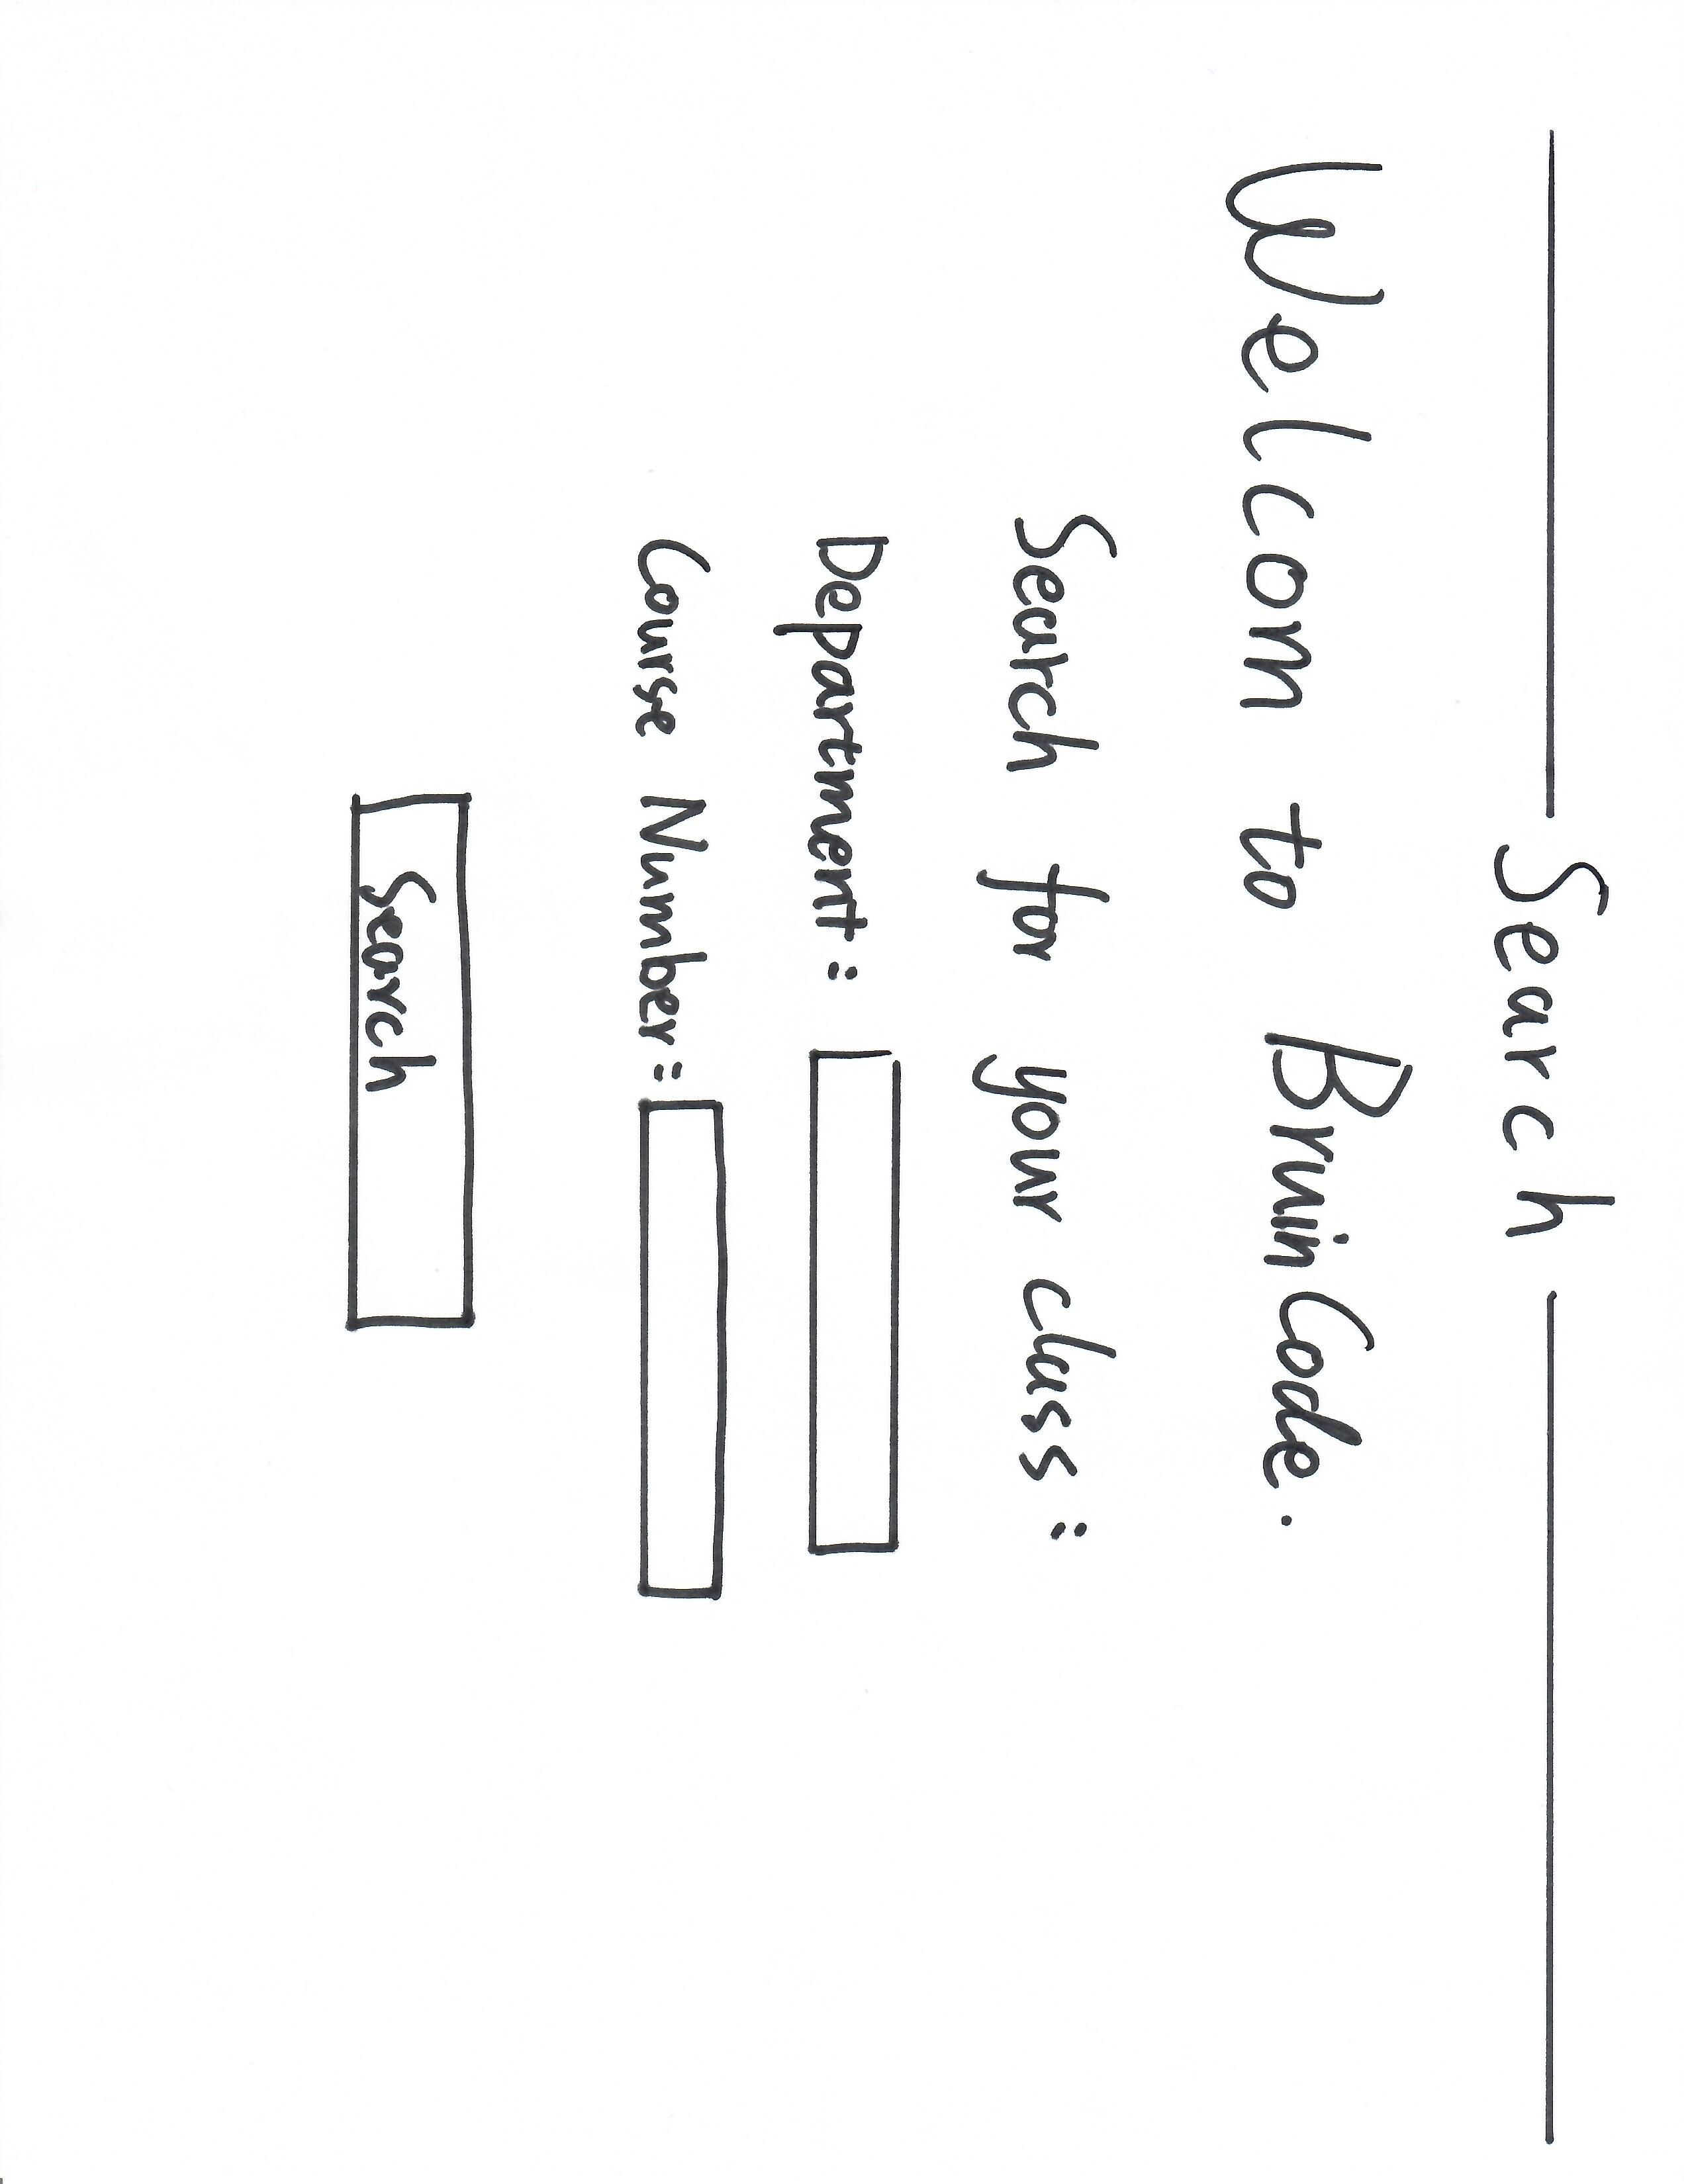 Search
Welcom to BruinCode.
Search for your class:
Department:
Course Number:
Search